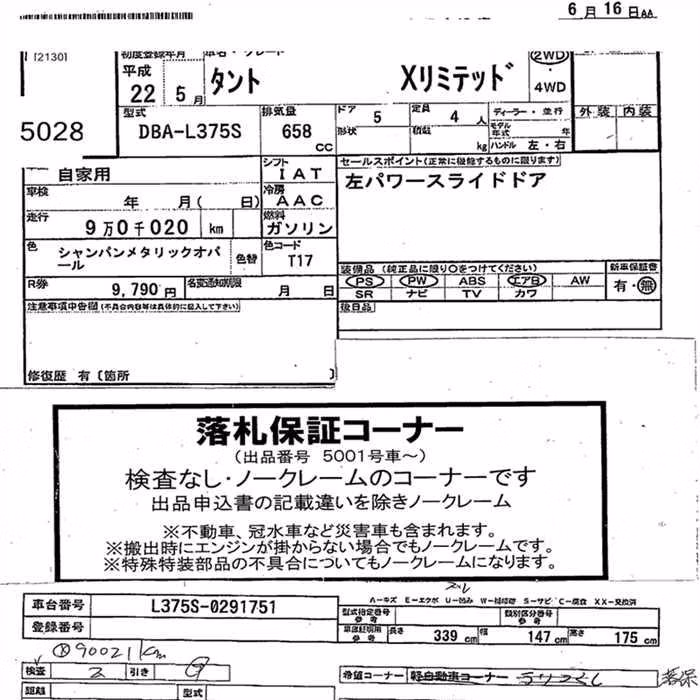 6月16日AA
[2130]
初度登録年月
平成
22 5月
タント Xリミテッド
2WD
4WD
5028
型式
DBA-L375S
排気量
658
CC
ドア
5
形状
定員
4 人
積載
kg
ディーラー・並行
モデル年式 年
ハンドル 左・右
外装 内装
自家用
シフト
IAT
セールスポイント(正常に機能するものに限ります)
左パワースライドドア
車検
年 月( 日)
冷房
AAC
走行
9万0千020 km
燃料
ガソリン
色
シャンパンメタリックオパール
色替
色コード
T17
装備品(純正品に限り○をつけてください)
PS PW ABS エアB AW
SR ナビ TV カワ
新車保証書
有・無
R券
9,790円
名変通知期限
月 日
注意事項申告欄(不具合内容等は具体的に記入して下さい)
後日品
修復歴 有〔箇所 〕
落札保証コーナー
(出品番号 5001号車~)
検査なし・ノークレームのコーナーです
出品申込書の記載違いを除きノークレーム
※不動車、冠水車など災害車も含まれます。
※搬出時にエンジンが掛からない場合でもノークレームです。
※特殊特装部品の不具合についてもノークレームになります。
A-キズ E-エクボ U-凹み W-補修跡 S-サビ C-腐食 XX-交換済
車台番号
L375S-0291751
型式指定番号
参考
類別区分番号
参考
登録番号
車庫証明用
参考
長さ 339 cm 幅 147 cm 高さ 175 cm
90021 km
検査
引き
希望コーナー 軽自動車コーナー
落保
距離
型式